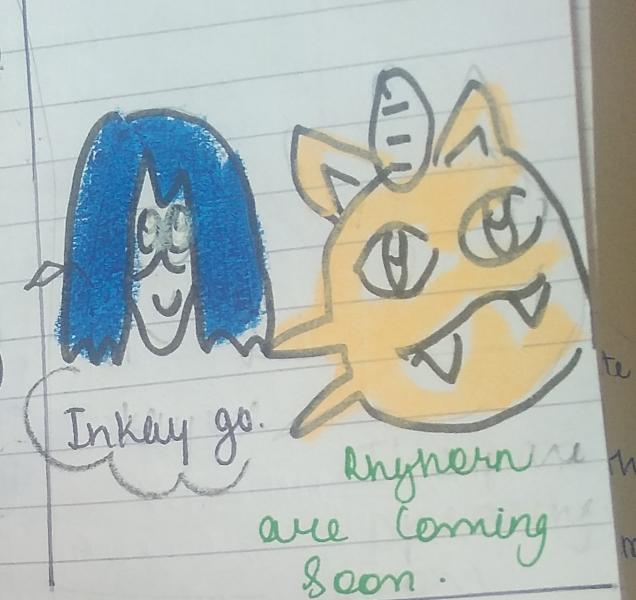 Inkay go.
Rhyhorn
are coming
soon.
te